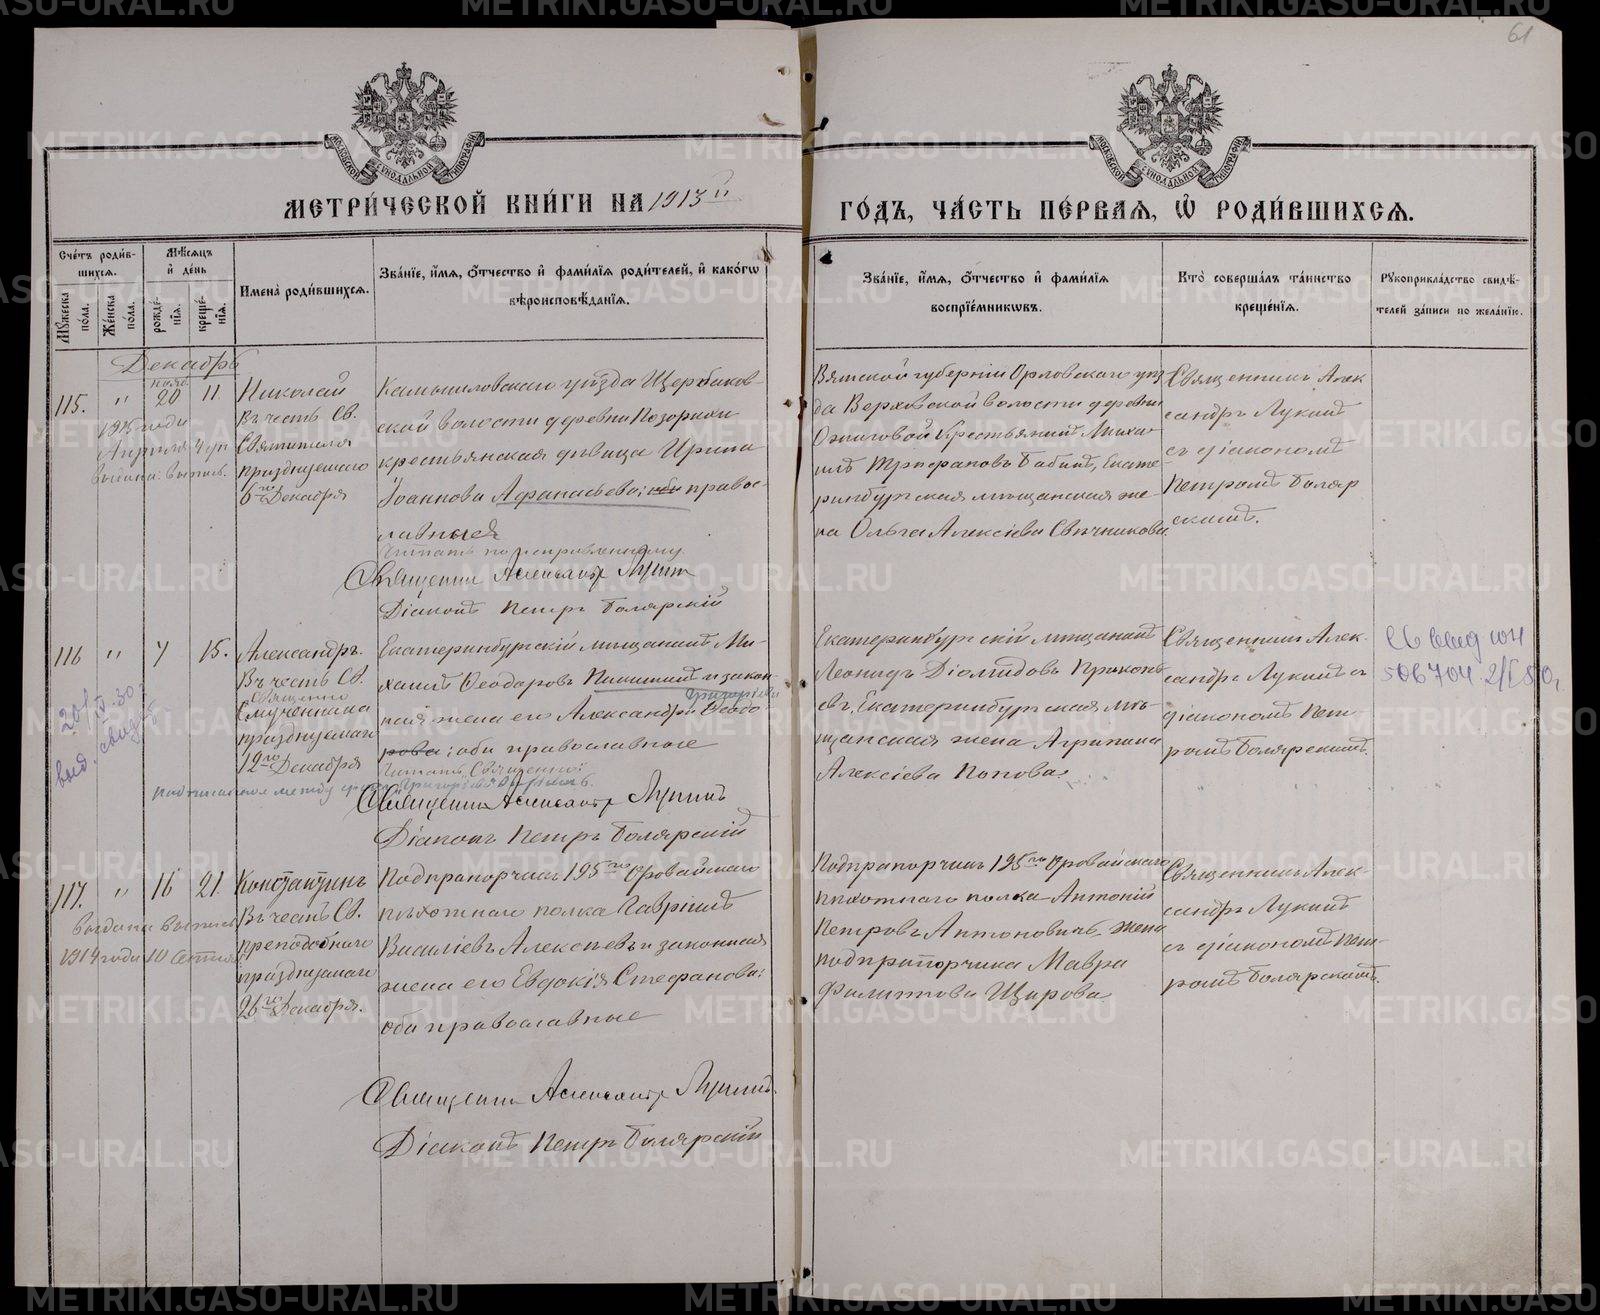 61
МЕТРИ́ЧЕСКОЙ КНИ́ГИ НА 1913й
ГО́ДЪ, ЧА́СТЬ ПЕ́РВАЯ, Ѡ҆ РОДИ́ВШИХСѦ.
Сче́тъ роди́в-
шихсѧ.
Мѣ́сѧцъ
и҆ де́нь
Мꙋ́жеска по́ла.
Же́нска по́ла.
рожде́-
нїѧ.
креще́-
нїѧ.
И҆мена̀ роди́вшихсѧ.
Зва́нїе, и҆́мѧ, ѻ҆́тчество и҆ фами́лїѧ роди́телей, и҆ како́гѡ
вѣроисповѣ́данїѧ.
Зва́нїе, и҆́мѧ, ѻ҆́тчество и҆ фами́лїѧ
воспрїе́мникѡвъ.
Кто̀ соверша́лъ та́инство
креще́нїѧ.
Рꙋкоприкла́дство свидѣ́-
телей за́писи по жела́нїю.
Декабрь
115.
"
нояб.
20
11.
Николай
Въ честь Св.
Святителя
празднуемаго
6го Декабря
1915 года
Апреля 4 дн
выдана выпись.
Камышловскаго уѣзда Щербаков-
ской волости деревни Позарихи
крестьянская дѣвица Ирина
Іоаннова Афанасьева; оба правос-
лавныея
Читать по исправленному
Священникъ Александръ Лукинъ
Діаконъ Петръ Боляр­скій
Вятской губерніи Орловскаго уѣз
да Верховской волости деревни
Ожиговой Крестьянинъ Миха-
илъ Трифановъ Бабинъ, Екате-
ринбургская мѣщанская же-
на Ольга Алексіева Свѣчникова.
Священникъ Алек
сандръ Лукинъ
съ діакономъ
Петромъ Боляр
скимъ.
116
"
7
15.
Александръ.
Въ честь Св.
Священно
мученника
празднуемаго
12го Декабря
Екатеринбургскій мѣщанинъ Ми-
хаилъ Ѳеодоровъ Никитинъ и закон-
ная жена его Александра Ѳеодо-
Григоріева
рова; оба православные
Читать: "Священно"
надписанное между строкъ "Григоріева" вѣрить.
Священникъ Александръ Лукинъ
Діаконъ Петръ Болярскій
Екатеринбургскій мѣщанинъ
Леонидъ Діомидовъ Прокопь
евъ, Екатеринбургская мѣ-
щанская жена Агрипина
Алексіева Попова.
Священникъ Алек-
сандръ Лукинъ съ
діакономъ Пет
ромъ Болярскимъ.
506704 2/I
117.
"
16
21.
Константинъ
Въ честь Св.
преподобнаго
празднуемаго
26го Декабря.
выдана выпись
1914 года 10 Сентяб
Подпрапорщикъ 195го Оровайскаго
пѣхотнаго полка Гавріилъ
Василіевъ Алексѣевъ и законная
жена его Евдокія Стефанова:
оба православные
Священникъ Александръ Лукинъ.
Діаконъ Петръ Болярскій
Подпрапорщикъ 195го Оровайскаго
пѣхотнаго полка Антоній
Петровъ Антоновичъ жена
подпрапорщика Мавра
Филиппова Щирова
Священникъ Алек-
сандръ Лукинъ
съ діакономъ Пет-
ромъ Болярскимъ.
METRIKI.GASO-URAL.RU